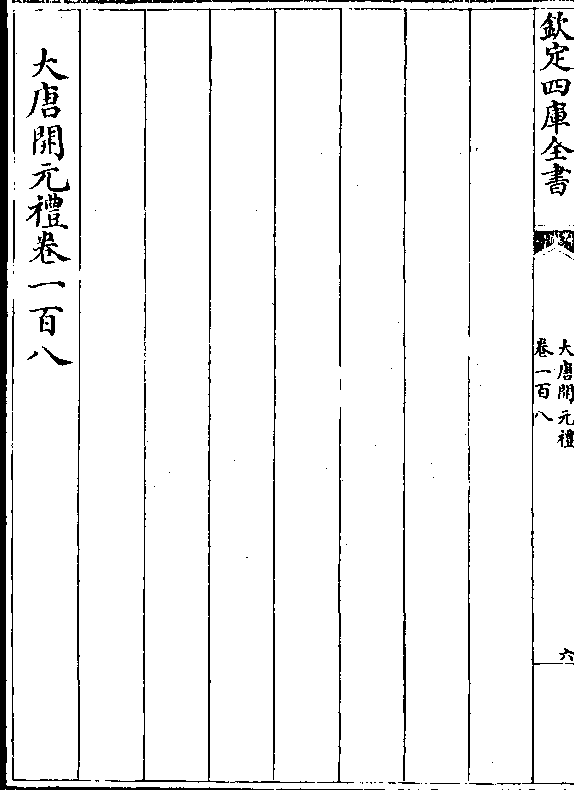 欽定四庫全書
大唐開元禮
卷一百八
六
大唐開元禮卷一百八